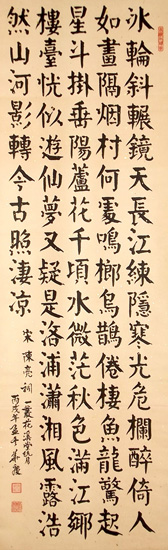 氷輪斜輾鏡天長江練隱寒光危欄醉倚人
如畫隔烟村何處鳴榔烏鵲倦棲魚龍驚起
星斗掛垂陽蘆花千頃水微茫秋色滿江鄉
樓臺恍似遊仙夢又疑是洛浦瀟湘風露浩
然山河影轉今古照淒涼
宋陳亮詞一叢花溪堂玩月
丙戌年孟